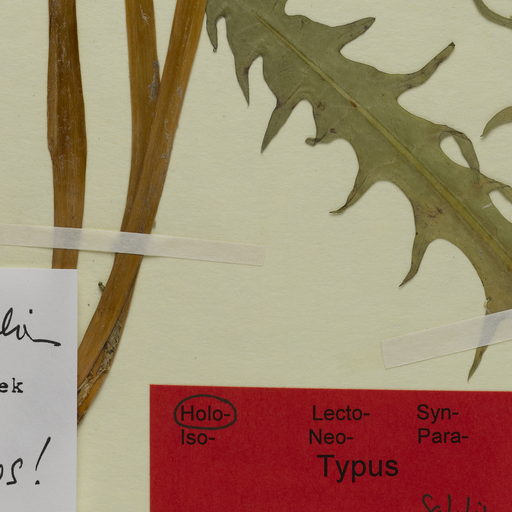 ek
Holo- Lecto- Syn-
Iso- Neo- Para-
Typus